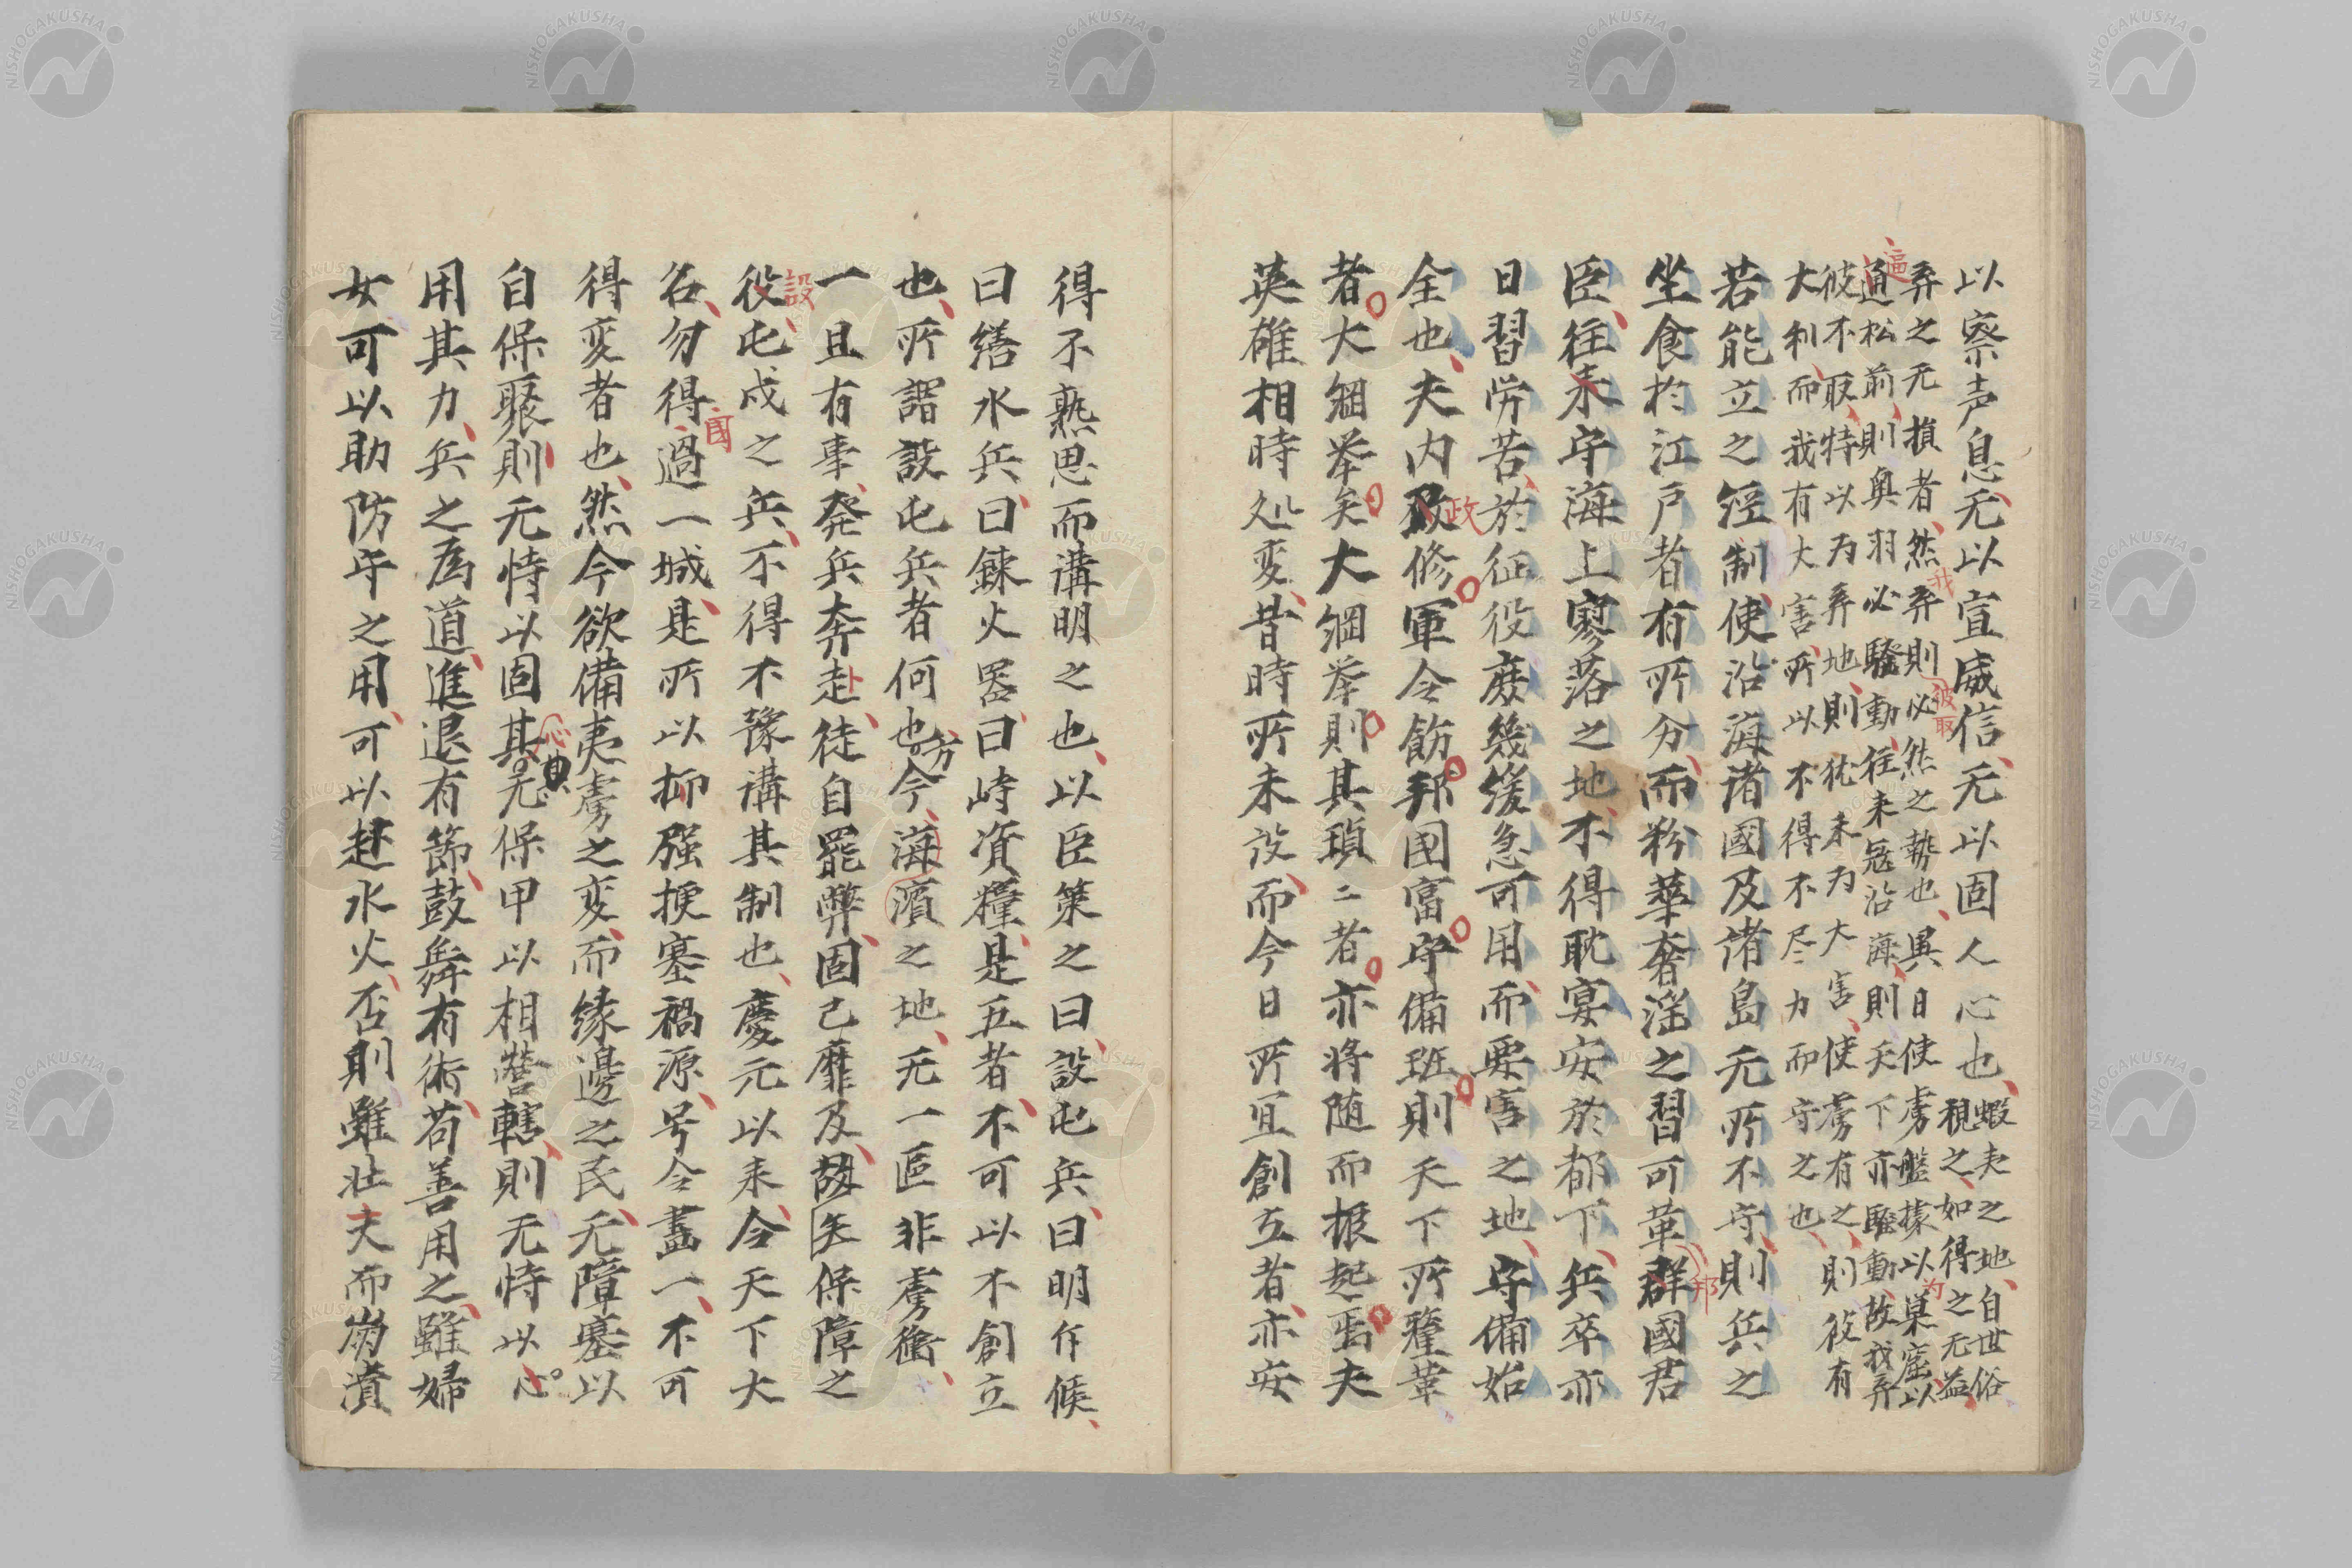 以察声息无以宣威信无以固人心也蝦夷之地自世俗
視之如得之无益
弃之无損者然弃則必然之勢也異日使虜盤據以巣窟以
我
彼取
为
通松前則奥羽必騷動往来冦沿海則天下亦騷動故我弃
逼
彼不取特以为弃地則犹未为大害使虜有之則彼有
大利而我有大害所以不得不尽力而守之也
若能立之經制使沿海諸國及諸島无所不守則兵之
坐食於江戸者有所分而粉華奢滛之習可革群國君
邦
臣往来守海上寥落之地不得耽宴安於都下兵卒亦
日習労苦於征役庶幾緩急可用而要害之地守備始
全也夫内政修軍令飭邦國富守備班則天下所釐革
政
者大綱挙矣大綱挙則其瑣二者亦将随而振起焉夫
英雄相時処変昔時所未設而今日所宜創立者亦安
得不熟思而溝明之也以臣策之曰設屯兵曰明斥候
曰繕水兵曰錬火器曰峙資糧是五者不可以不創立
也所謂設屯兵者何也方今海濱之地无一區非虜衝
一旦有事発兵奔走徒自罷弊固己靡及故矣保障之
役屯戍之兵不得不豫溝其制也慶元以来令天下大
設
名勿得過一城是所以抑强梗塞禍源号令畫一不可
國
得変者也然今欲備夷虜之変而縁邊之民无障塞以
自保聚則无恃以固其无保甲以相營轄則无恃以心
心
用其力兵之為道進退有節鼓舞有術苟善用之雖婦
女可以助防守之用可以赴水火否則雖壮夫而崩潰